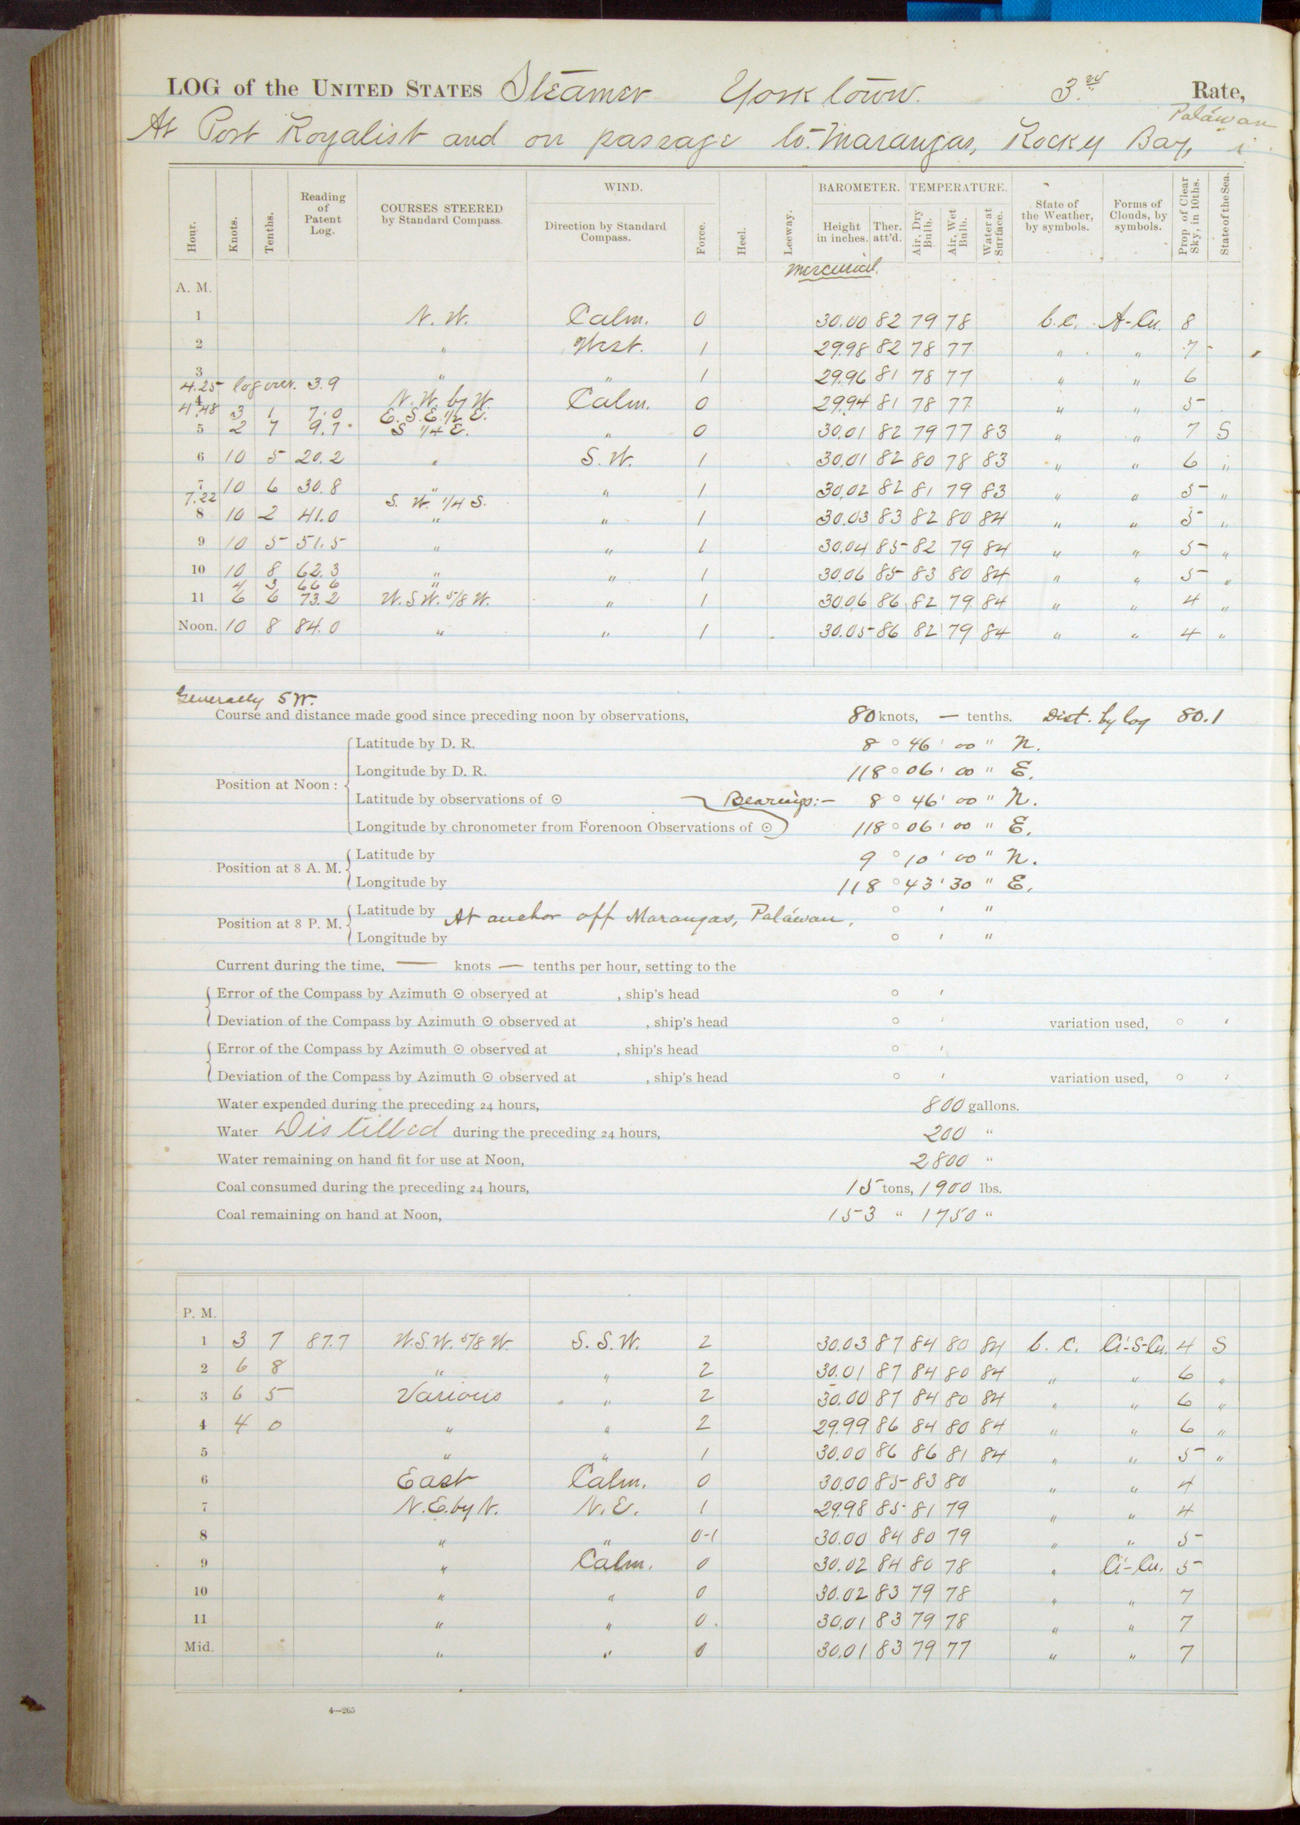 LOG of the UNITED STATES Steamer Yorktown. 3rd Rate,
Paláwan
At Port Royalist and on passage to Marangas, Rocky Bay,
Hour. Knots. Tenths. Reading of Patent Log. COURSES STEERED by Standard Compass. WIND. Direction by Standard Compass. Force. Heel. Leeway. BAROMETER. Height in inches. Ther. att'd. TEMPERATURE. Air, Dry Bulb. Air, Wet Bulb. Water at Surface. State of the Weather, by symbols. Forms of Clouds, by symbols. Prop. of Clear Sky, in 10ths. State of the Sea.
mercurial.
A. M.
1 N. W. Calm. 0 30.00 82 79 78 b.c. A-Cu. 8
2 " West. 1 29.98 82 78 77 " " 7
3 " " 1 29.96 81 78 77 " " 6
4.25 log over. 3.9
4 N. W. by W. Calm. 0 29.94 81 78 77 " " 5
4.48 3 1 7.0 E. S. E. 1/2 E.
5 2 7 9.7 S 1/4 E. " 0 30.01 82 79 77 83 " " 7 S
6 10 5 20.2 " S. W. 1 30.01 82 80 78 83 " " 6 "
7 10 6 30.8 " " 1 30.02 82 81 79 83 " " 5 "
7.22 S. W. 1/4 S.
8 10 2 41.0 " " 1 30.03 83 82 80 84 " " 5 "
9 10 5 51.5 " " 1 30.04 85 82 79 84 " " 5 "
10 10 8 62.3 " " 1 30.06 85 83 80 84 " " 5 "
4 3 66 6 "
11 6 6 73.2 W. S W. 5/8 W. " 1 30.06 86 82 79 84 " " 4 "
Noon. 10 8 84.0 " " 1 30.05 86 82 79 84 " " 4 "
Generally SW.
Course and distance made good since preceding noon by observations, 80 knots, — tenths. Dist. by log 80.1
Position at Noon:
Latitude by D. R. 8 ° 46 ' 00 " N.
Longitude by D. R. 118 ° 06 ' 00 " E.
Latitude by observations of ☉ Bearings:— 8 ° 46 ' 00 " N.
Longitude by chronometer from Forenoon Observations of ☉ 118 ° 06 ' 00 " E.
Position at 8 A. M.
Latitude by 9 ° 10 ' 00 " N.
Longitude by 118 ° 43 ' 30 " E.
Position at 8 P. M.
Latitude by At anchor off Marangas, Paláwan. ° ' "
Longitude by ° ' "
Current during the time, — knots — tenths per hour, setting to the
Error of the Compass by Azimuth ☉ observed at , ship's head ° '
Deviation of the Compass by Azimuth ☉ observed at , ship's head ° ' variation used, ° '
Error of the Compass by Azimuth ☉ observed at , ship's head ° '
Deviation of the Compass by Azimuth ☉ observed at , ship's head ° ' variation used, ° '
Water expended during the preceding 24 hours, 800 gallons.
Water Distilled during the preceding 24 hours, 200 "
Water remaining on hand fit for use at Noon, 2800 "
Coal consumed during the preceding 24 hours, 15 tons, 1900 lbs.
Coal remaining on hand at Noon, 153 " 1750 "
P. M.
1 3 7 87.7 W.S.W. 5/8 W. S. S. W. 2 30.03 87 84 80 84 b. c. Ci-S-Cu. 4 S
2 6 8 " " 2 30.01 87 84 80 84 " " 6 "
3 6 5 Various " 2 30.00 87 84 80 84 " " 6 "
4 4 0 " " 2 29.99 86 84 80 84 " " 6 "
5 " " 1 30.00 86 86 81 84 " " 5 "
6 East Calm. 0 30.00 85 83 80 " " 4
7 N. E. by N. N. E. 1 29.98 85 81 79 " " 4
8 " " 0-1 30.00 84 80 79 " " 5
9 " Calm. 0 30.02 84 80 78 " Ci-Cu. 5
10 " " 0 30.02 83 79 78 " " 7
11 " " 0. 30.01 83 79 78 " " 7
Mid. " " 0 30.01 83 79 77 " " 7
4—265